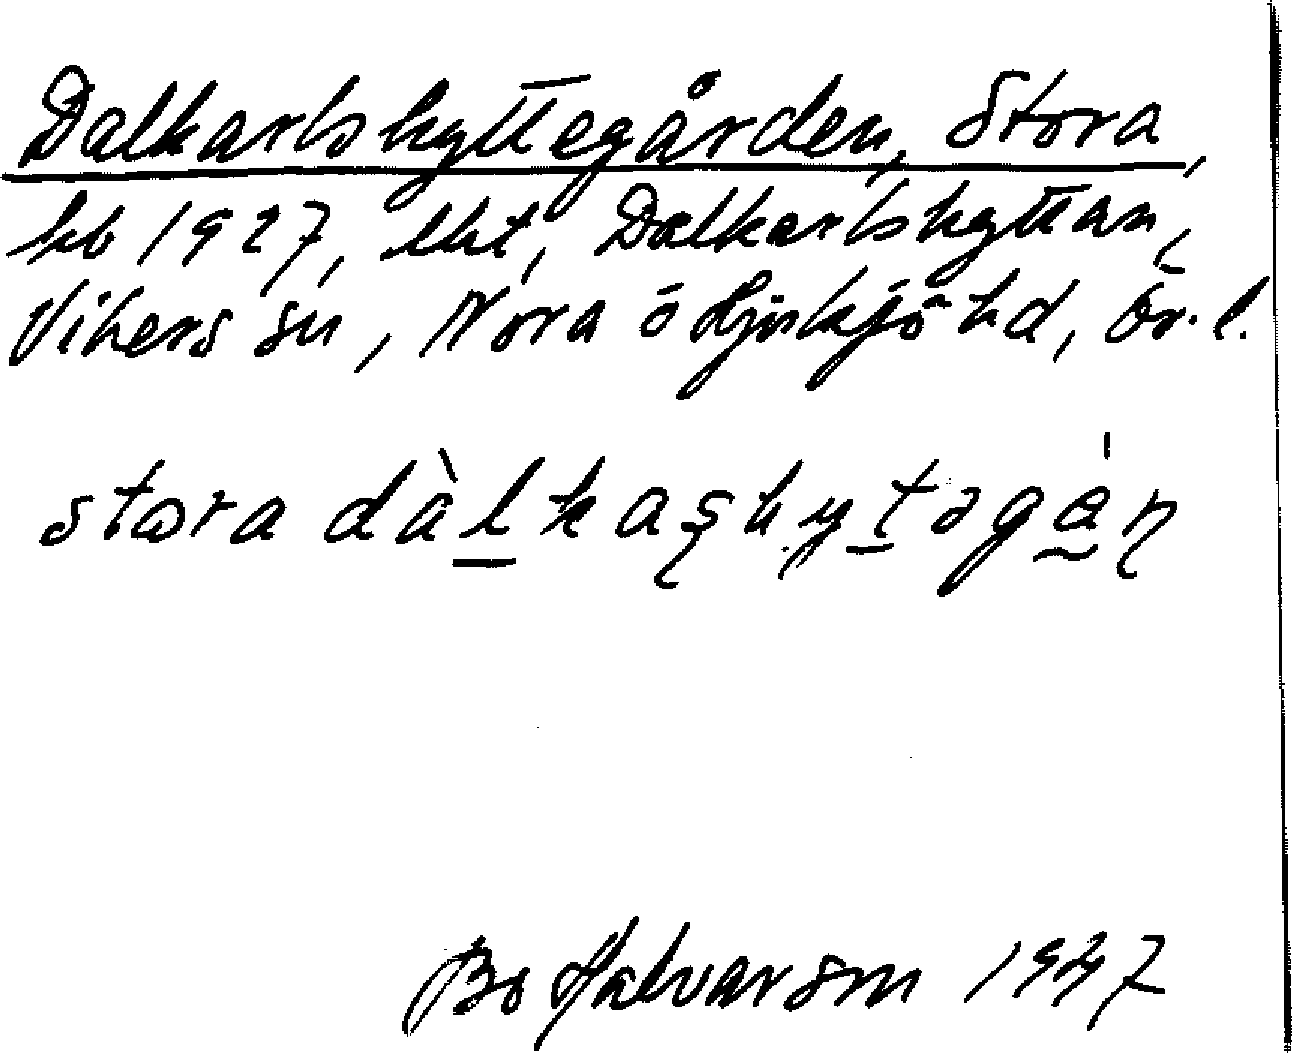 Dalkarlshyttegården, Stora,
hb 1927, lht, Dalkarlshyttan,
Vikers sn, Nora ö Hjnhjö hd, Ör. l.
stɷra dàlkaʂhytəgạ́ɳ
Bo Halvarson 1947